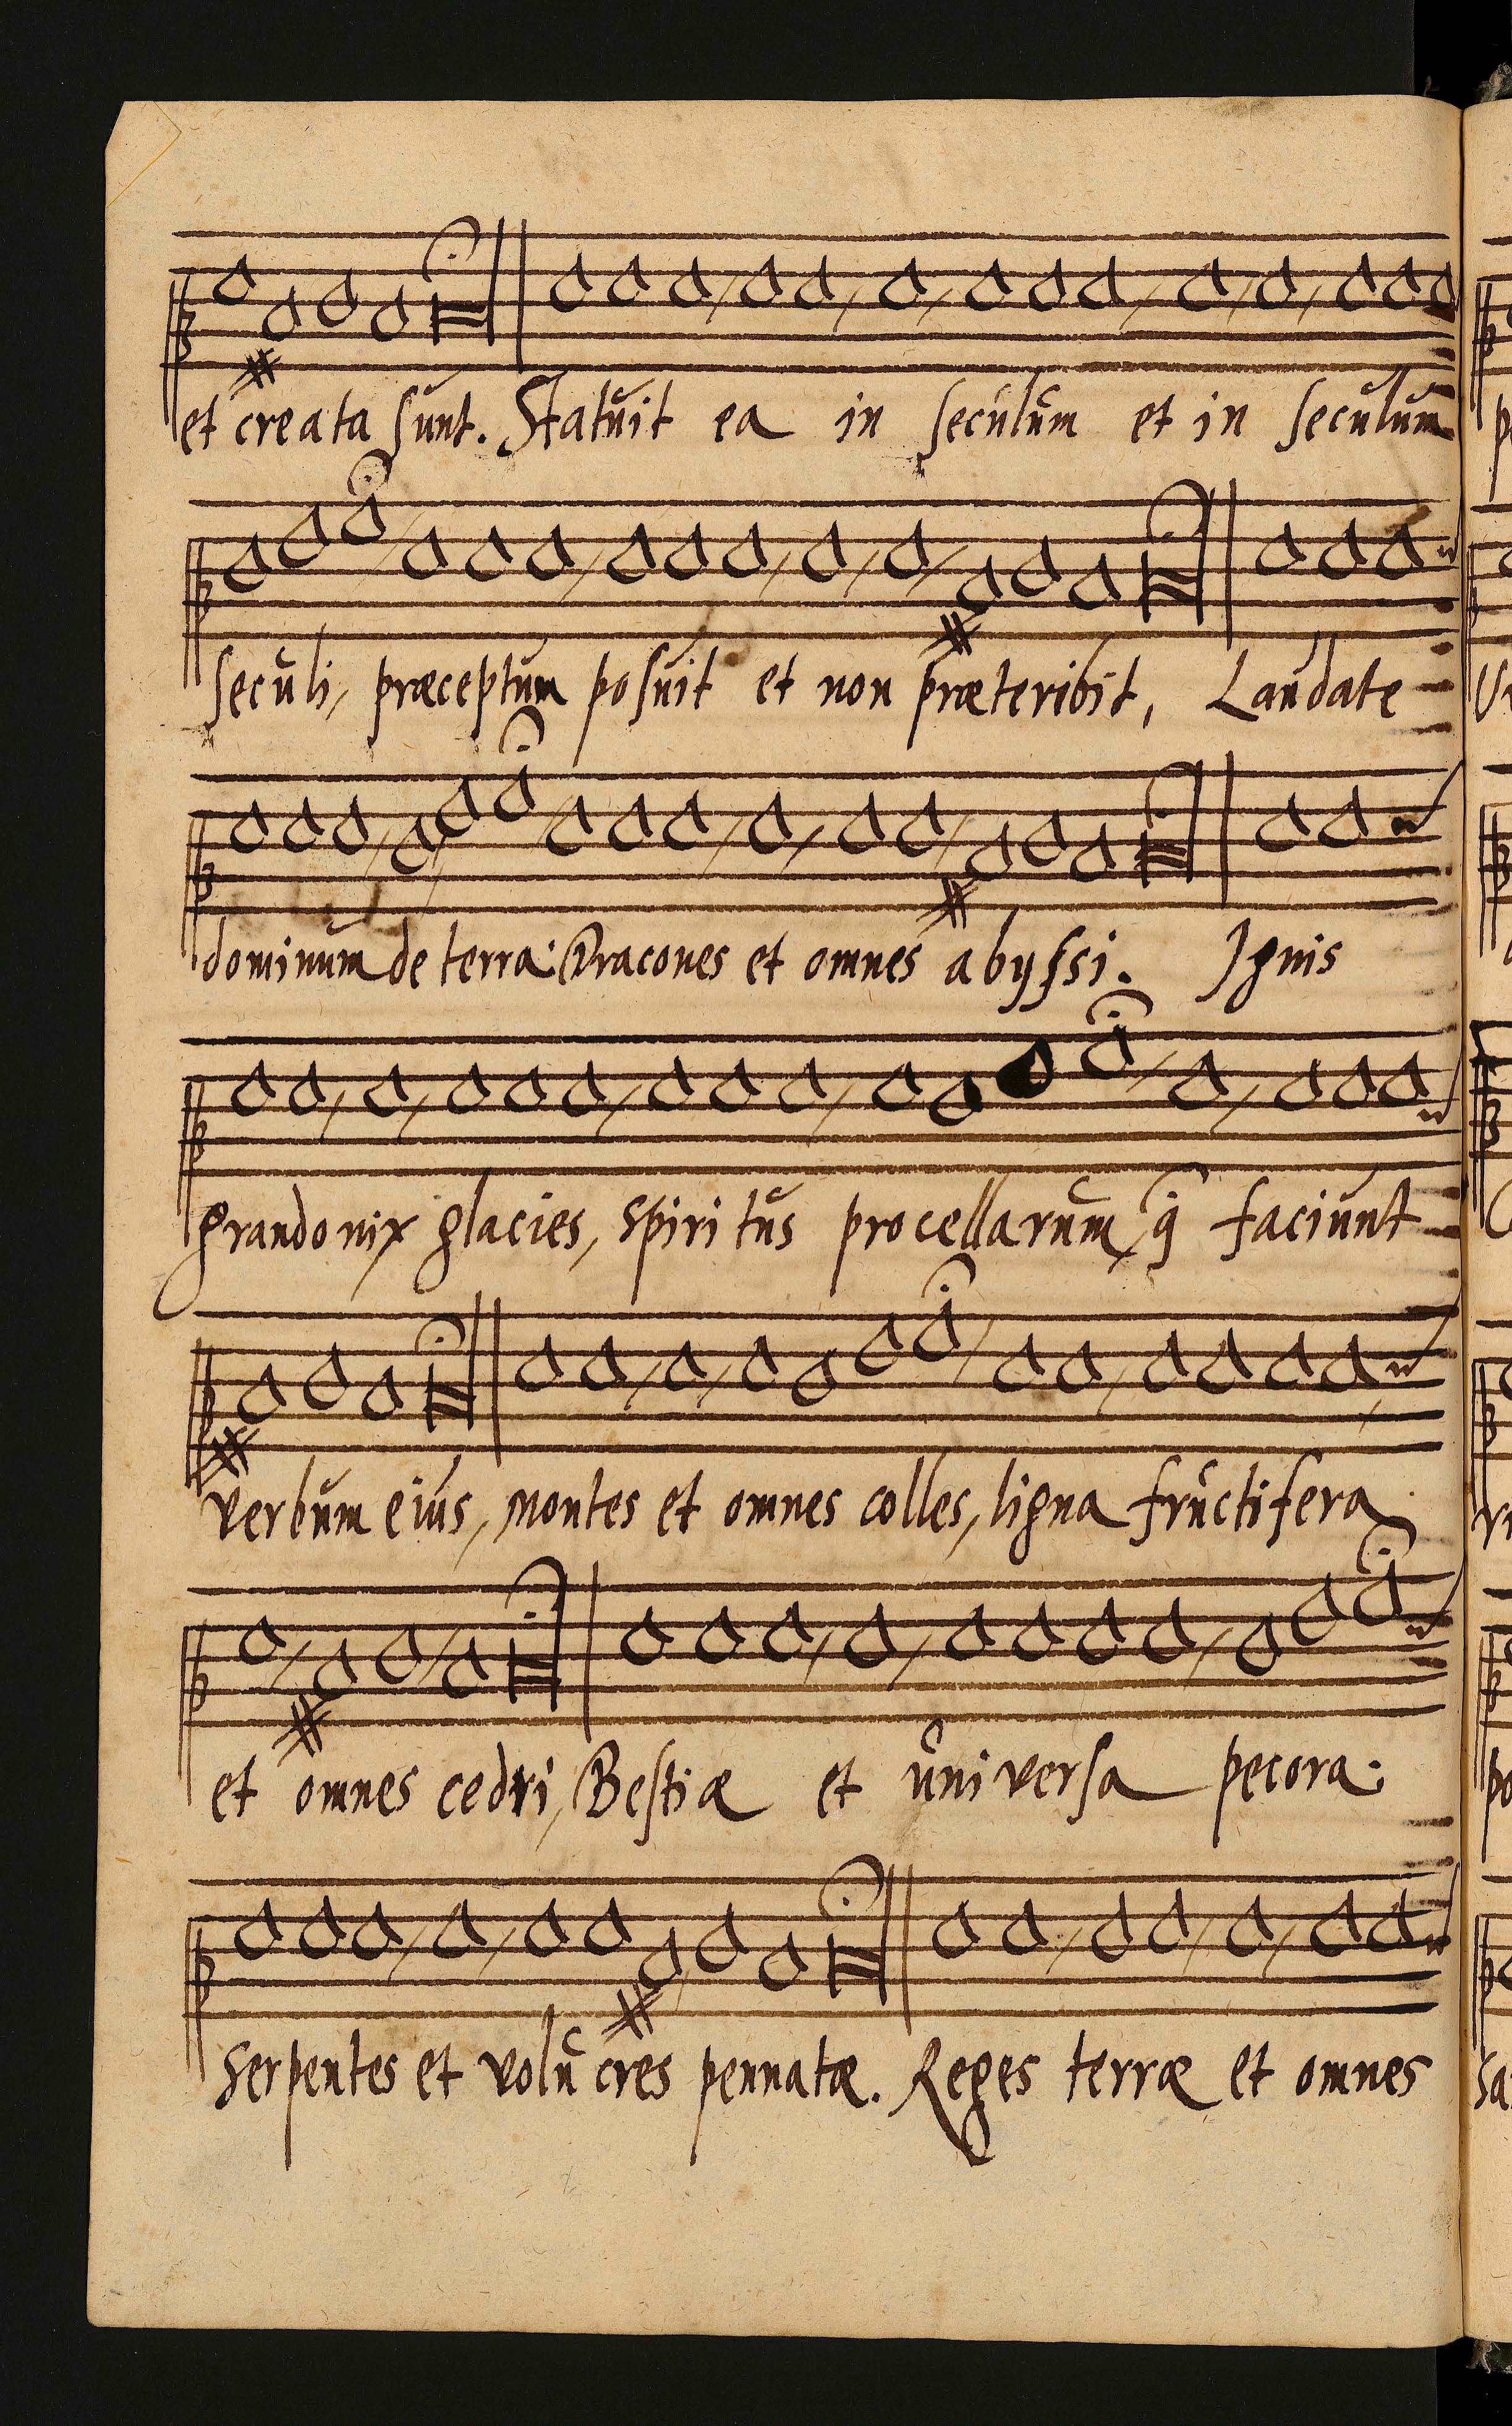 et creata sunt. Statuit ea in seculum et in seculum
seculi, præceptum posuit et non præteribit, Laudate
dominum de terra: Dracones et omnes abyssi. Ignis
grando nix glacies, spiritus procellarum, q̃ faciunt
verbum eius, Montes et omnes colles, ligna fructifera
et omnes cedri, Bestiæ et universa pecora:
Serpentes et volucres pennatæ. Reges terræ et omnes